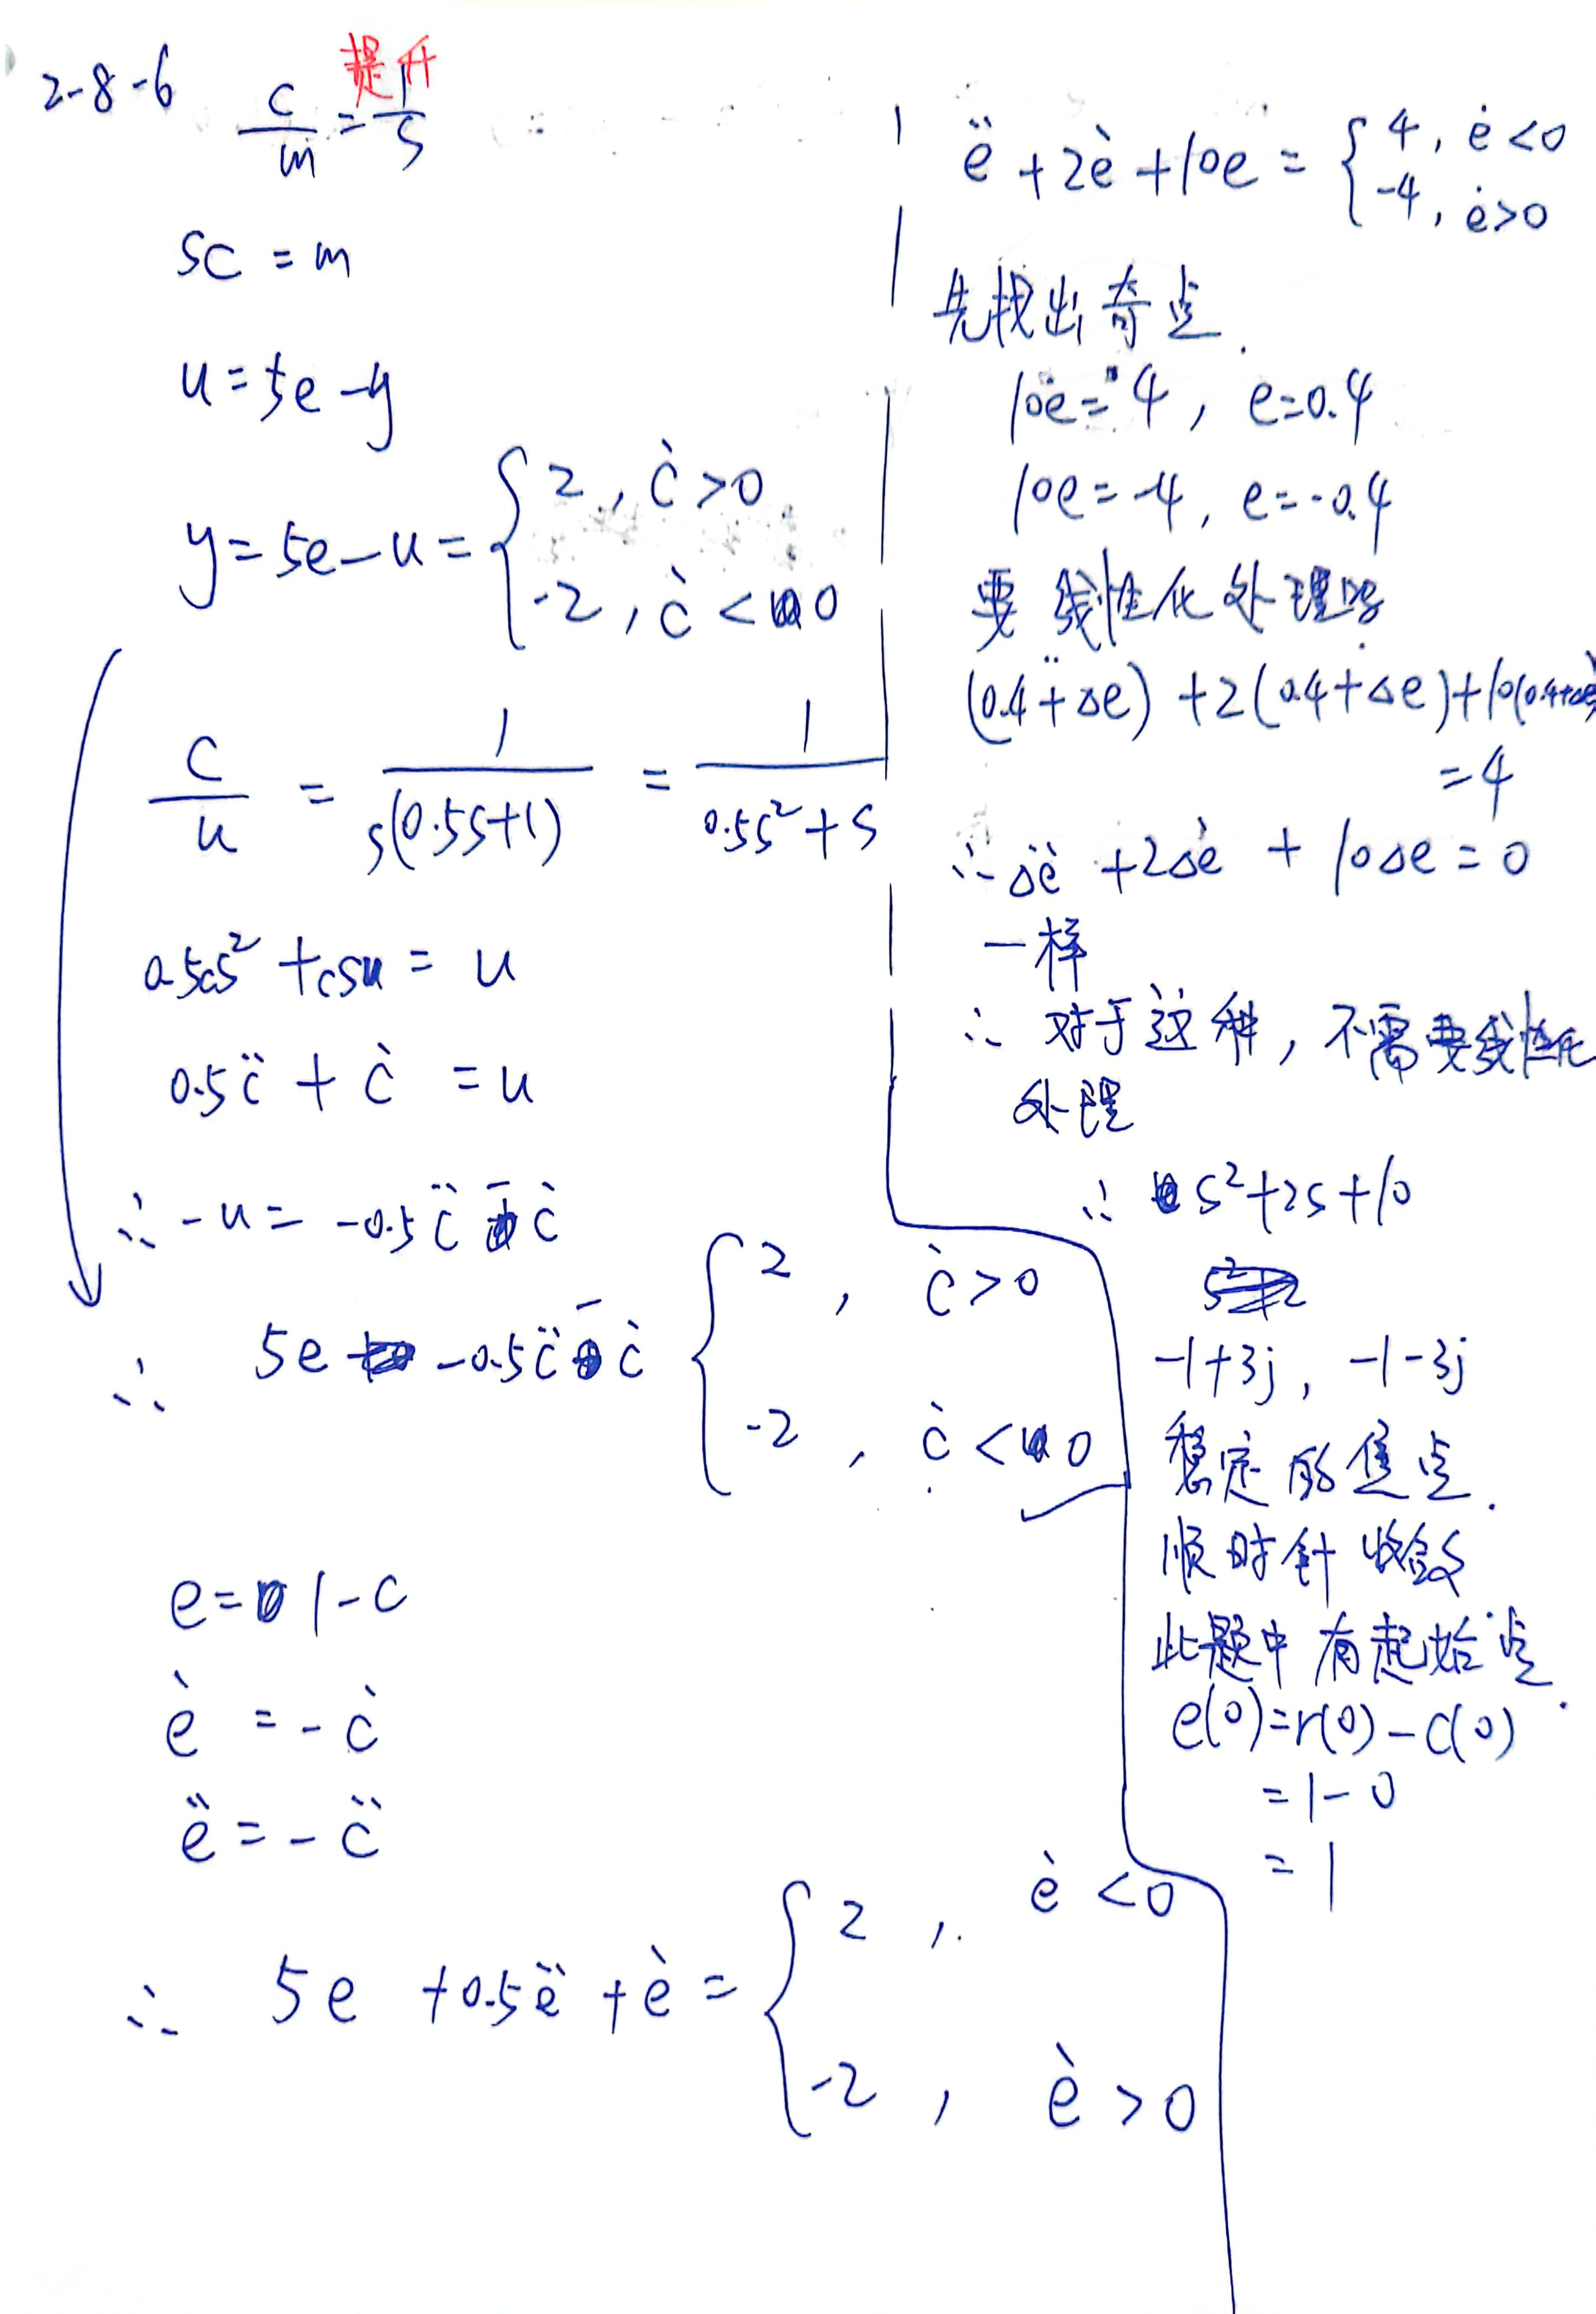 2-8-6 c/m = 1/s
提升
sc = m
u = 5e - y
y = 5e - u = { 2, ċ > 0
-2, ċ < 0
c/u = 1/(s(0.5s+1)) = 1/(0.5s²+s)
0.5cs² + cs = u
0.5c̈ + ċ = u
∴ -u = -0.5c̈ - ċ
∴ 5e - 0.5c̈ - ċ { 2, ċ > 0
-2, ċ < 0
e = 1 - c
ė = -ċ
ë = -c̈
∴ 5e + 0.5ë + ė = { 2, ė < 0
-2, ė > 0
ë + 2ė + 10e = { 4, ė < 0
-4, ė > 0
先找出奇点.
10e = 4, e = 0.4
10e = -4, e = -0.4
要线性化处理
(0.4+Δe)¨ + 2(0.4+Δe)˙ + 10(0.4+Δe)
= 4
∴ Δë + 2Δė + 10Δe = 0
一样
∴ 对于这种, 不需要线性化
处理
∴ s²+2s+10
-1+3j, -1-3j
稳定的焦点.
顺时针收敛
此题中有起始点.
e(0) = r(0) - c(0)
= 1 - 0
= 1